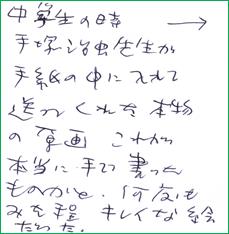 中学生の時 →
手塚治虫先生が
手紙の中に入れて
送ってくれた本物
の原画 これが
本当に手で書いた
ものかと、何度も
みた程 キレイな絵
だった。